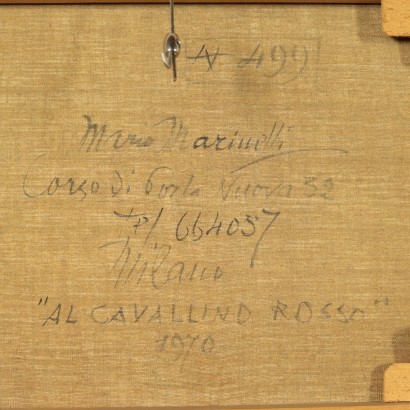 N 499
Mario Marinelli
Corso di Porta Nuova 52
Tel 664057
Milano
"AL CAVALLINO ROSSO"
1970